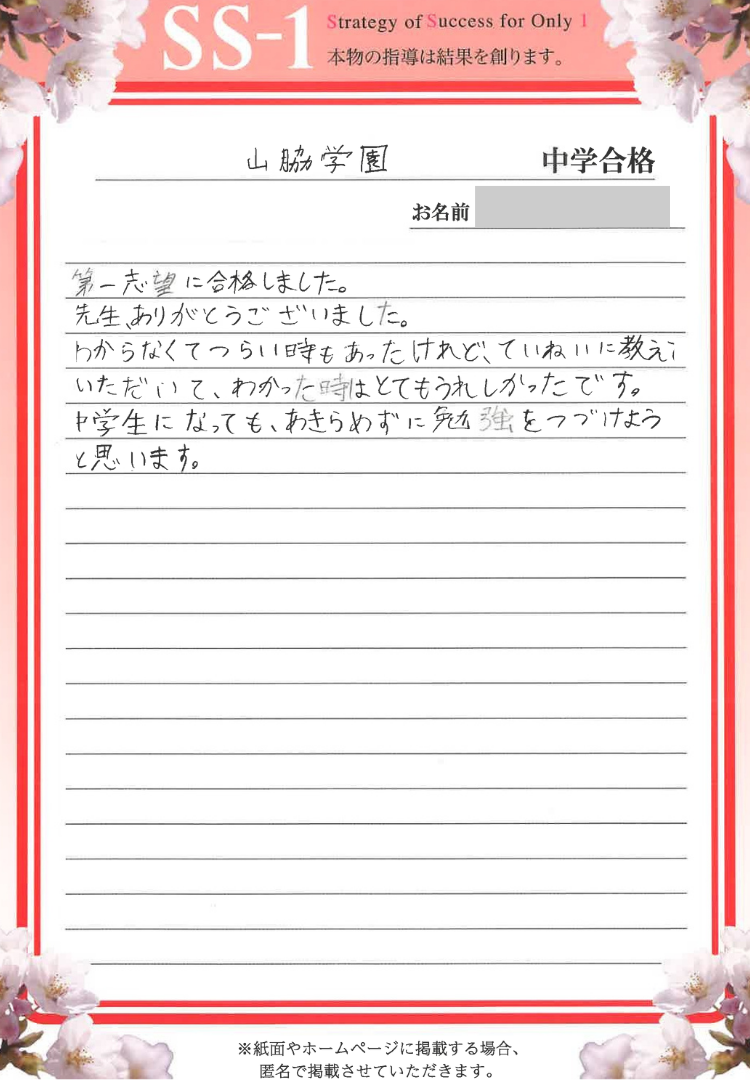 SS-1
Strategy of Success for Only 1
本物の指導は結果を創ります。
山脇学園 中学合格
お名前
第一志望に合格しました。
先生、ありがとうございました。
わからなくてつらい時もあったけれど、ていねいに教えて
いただいて、わかった時はとてもうれしかったです。
中学生になっても、あきらめずに勉強をつづけよう
と思います。
※紙面やホームページに掲載する場合、
匿名で掲載させていただきます。